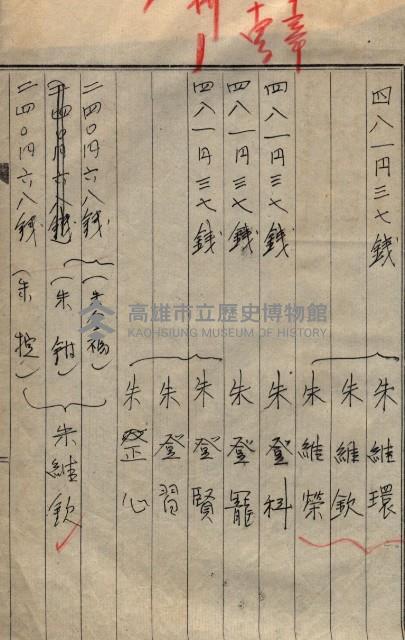 四八一円三七錢 朱維環
朱維欽
朱維榮
四八一円三七錢 朱登科
四八一円三七錢 朱登寵
四八一円三七錢 朱登賢
朱登習
朱心
二四〇円六八錢
二四〇円六八錢(朱鉗)朱維欽
二四〇円六八錢(朱控)
高雄市立歷史博物館
KAOHSIUNG MUSEUM OF HISTORY